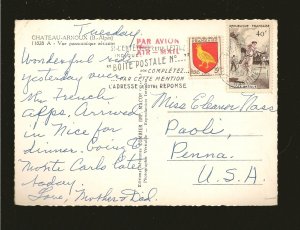 CHATEAU-ARNOUX (B.-Alpes)
11828 A - Vue panoramique aérienne
Tuesday
Wonderful ride
yesterday over
the French
alps. Arrived
in Nice for
dinner. Going to
Monte Carlo later
today.
Love, Mother & Dad.
PAR AVION
BOITE POSTALE No...
COMPLETEZ
PAR CETTE MENTION
L'ADRESSE DE VOTRE REPONSE
40F
Miss Eleanor Nass
Paoli,
Penna.
U.S.A.